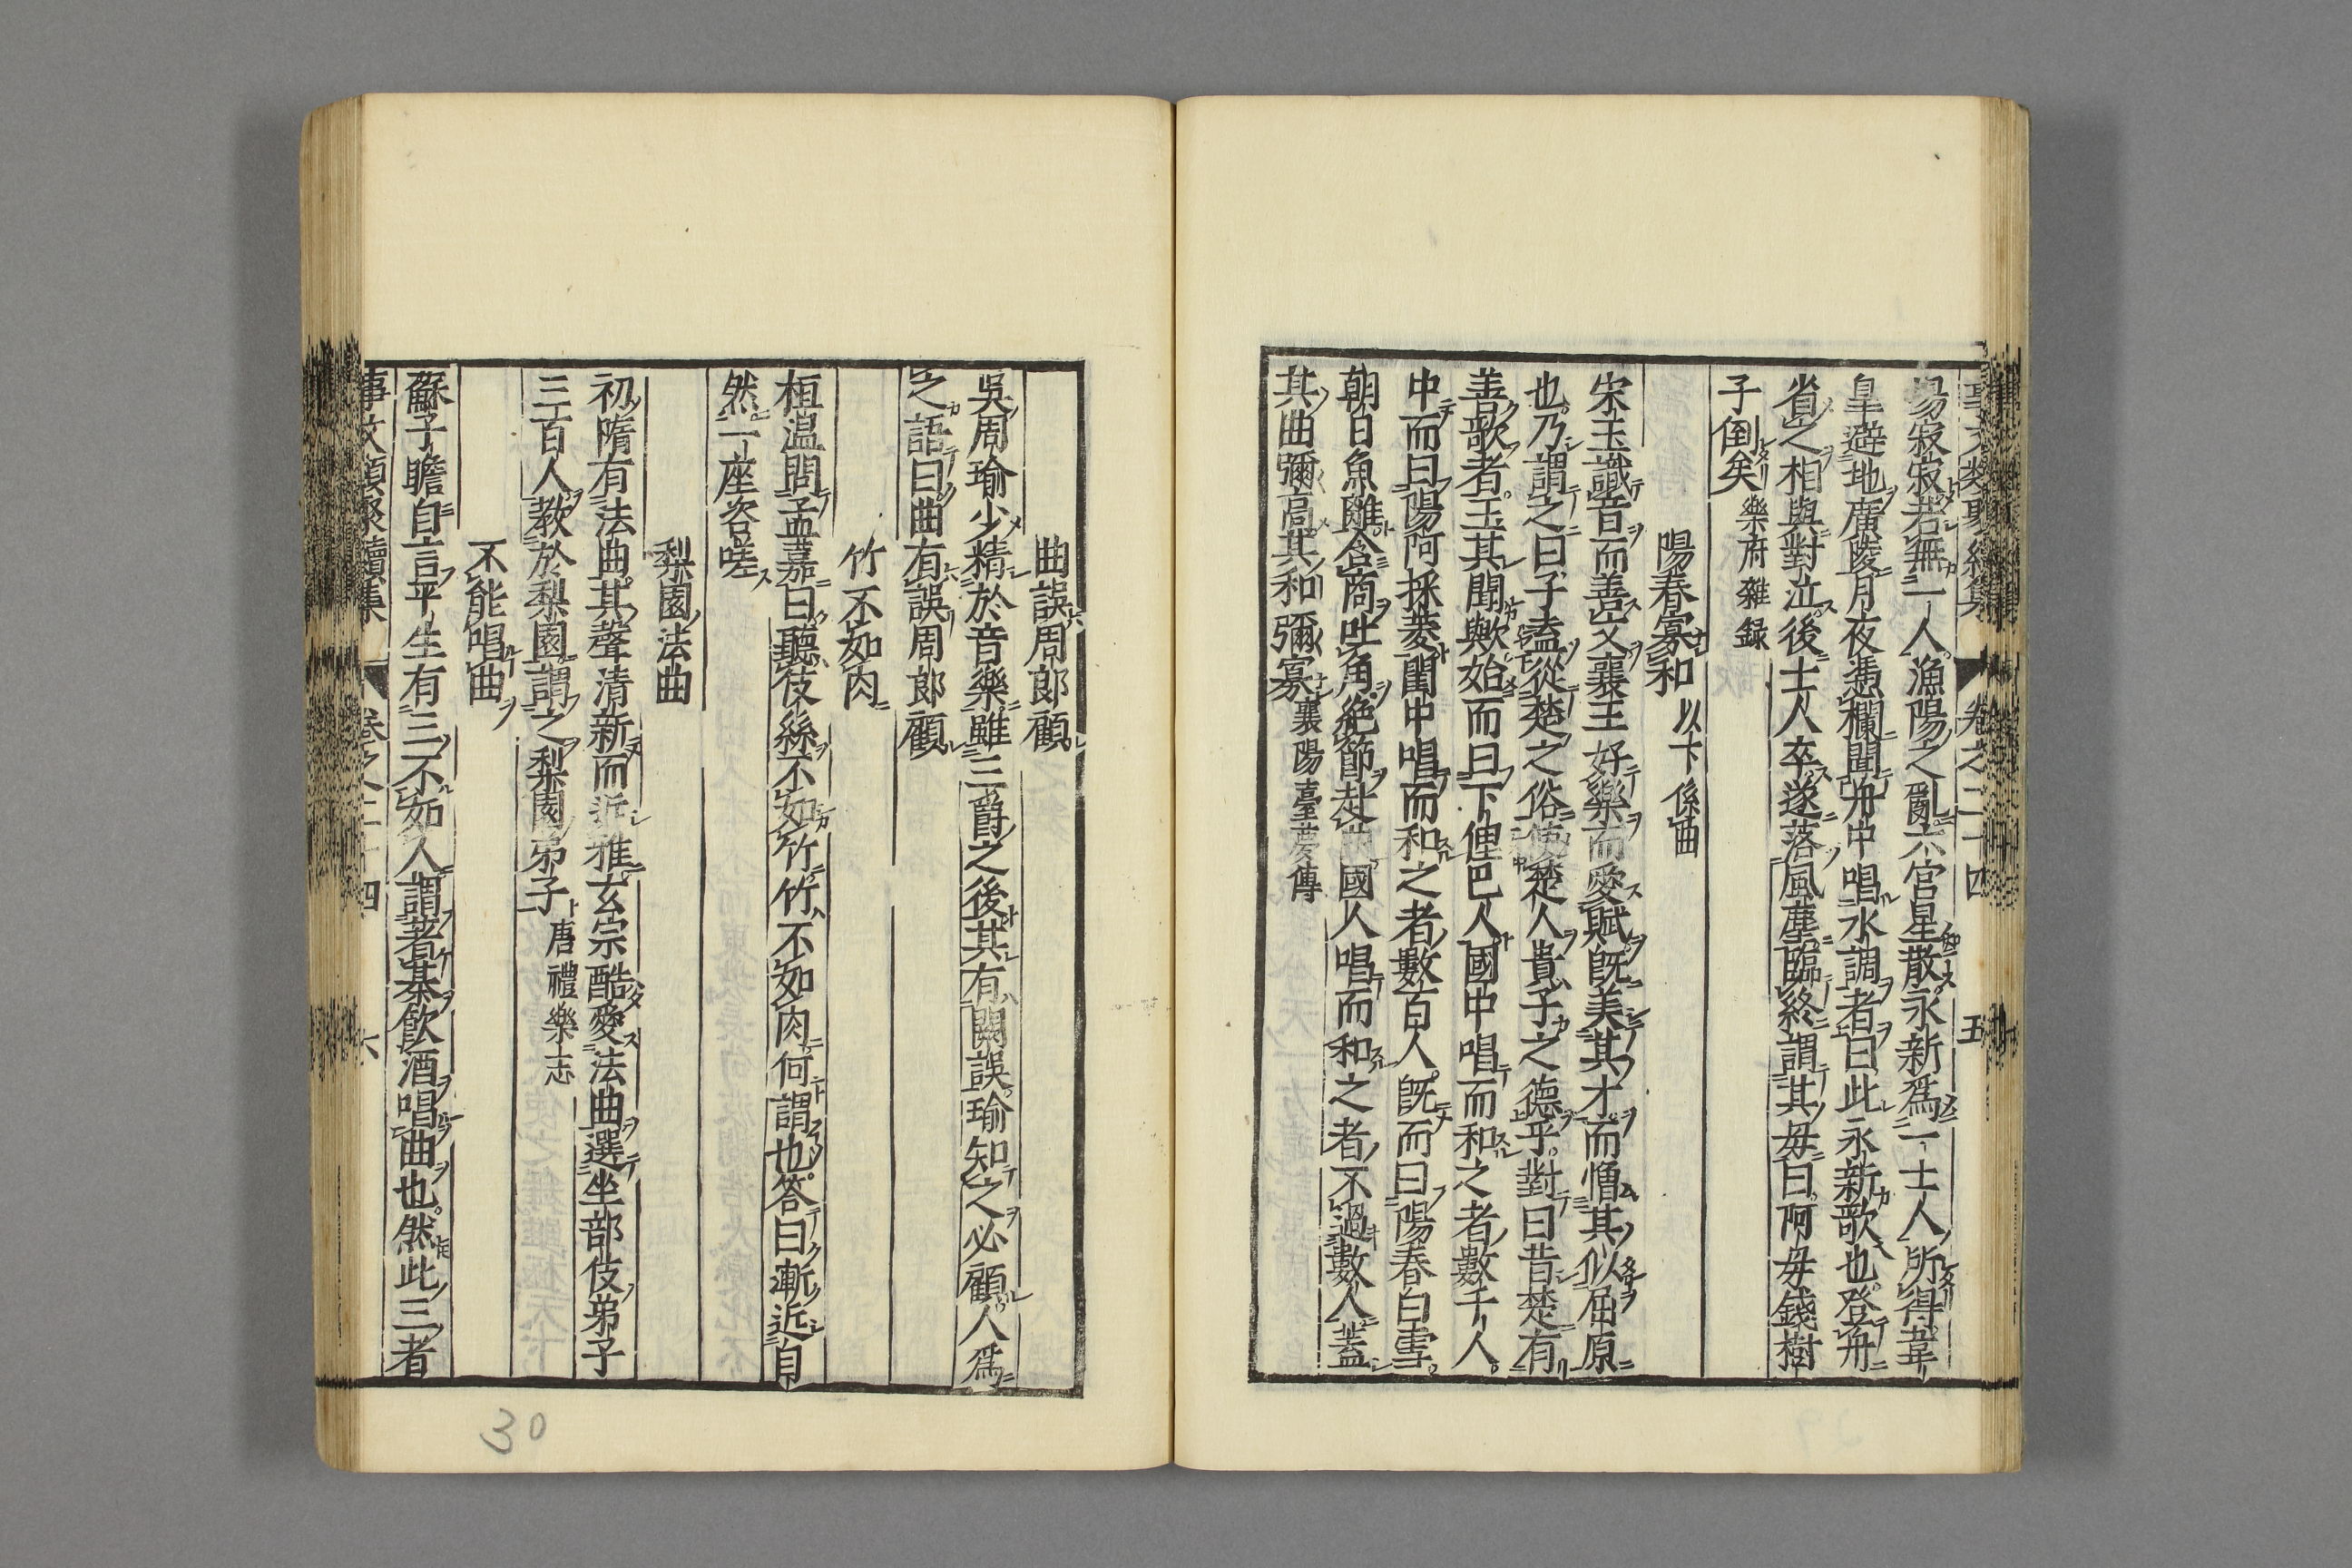 事文類聚續集 卷之二十四 五
場寂寂若無一人漁陽之亂六宮星散永新爲一士人所得韋
皇避地廣陵月夜憑欄聞舟中唱水調者曰此永新歌也登舟
省之相與對泣後士人卒遂落風塵臨終謂其母曰阿母錢樹
子倒矣樂府雜録
陽春寡和以下係曲
宋玉識音而善文襄王好樂而愛賦既美其才而憎其似屈原
也乃謂之曰子盍從楚之俗使楚人貴子之德乎對曰昔楚有
善歌者王其聞歟始而曰下俚巴人國中唱而和之者數千人
中而曰陽阿採菱國中唱而和之者數百人既而曰陽春白雪
朝日魚離含商吐角絶節赴曲國人唱而和之者不過數人蓋
其曲彌高其和彌寡襄陽臺耆傳
曲誤周郎顧
吳周瑜少精於音樂雖三爵之後其有闕誤瑜知之必顧人爲
之語曰曲有誤周郎顧
竹不如肉
桓温問孟嘉曰聽伎絲不如竹竹不如肉何謂也答曰漸近自
然一座咨嗟
梨園法曲
初隋有法曲其聲清新而近雅玄宗酷愛法曲選坐部伎弟子
三百人教於梨園謂之梨園弟子唐禮樂志
不能唱曲
蘇子瞻自言平生有三不如人謂著棊飲酒唱曲也然此三者
事文類聚續集 卷之二十四 六
30